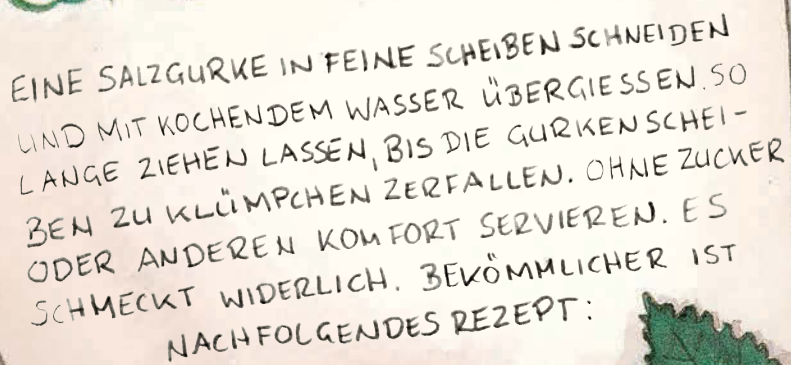 EINE SALZGURKE IN FEINE SCHEIBEN SCHNEIDEN
UND MIT KOCHENDEM WASSER ÜBERGIESSEN. SO
LANGE ZIEHEN LASSEN, BIS DIE GURKENSCHEI-
BEN ZU KLÜMPCHEN ZERFALLEN. OHNE ZUCKER
ODER ANDEREN KOMFORT SERVIEREN. ES
SCHMECKT WIDERLICH. BEKÖMMLICHER IST
NACHFOLGENDES REZEPT: